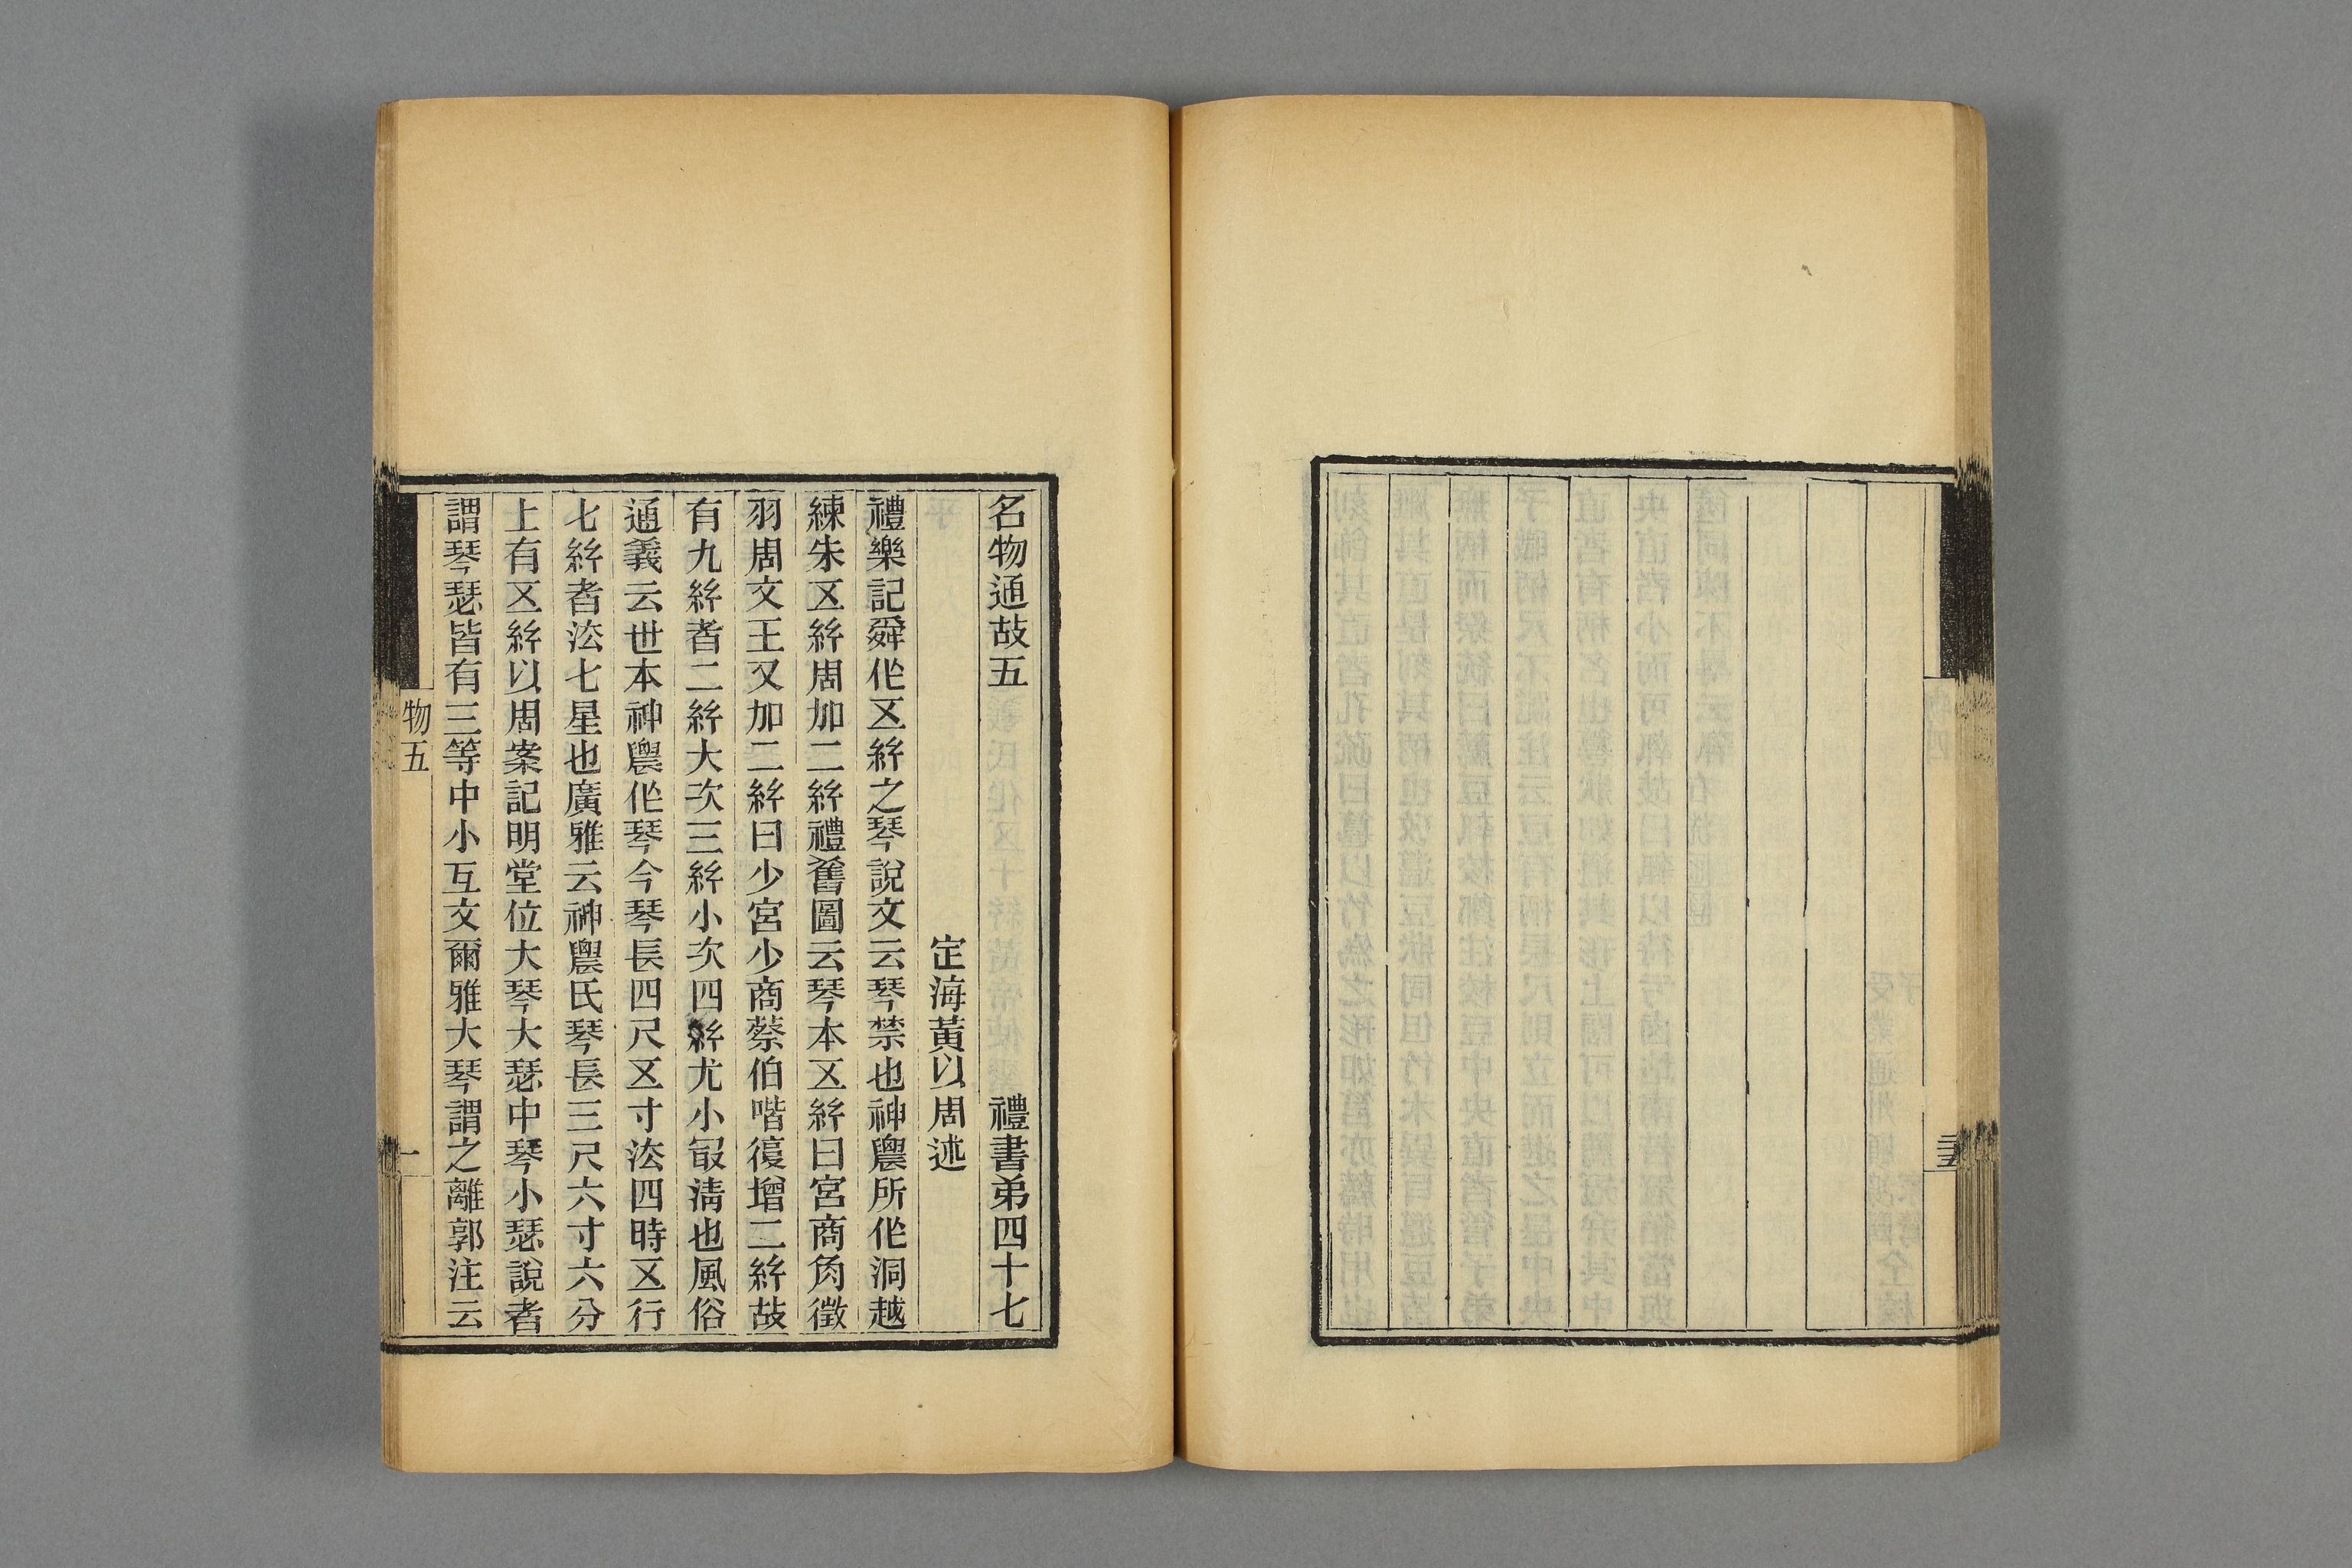 名物通故五　禮書弟四十七
定海黃以周述
禮樂記舜作𠄡絲之琴說文云琴禁也神農所作洞越
練朱𠄡絲周加二絲禮舊圖云琴本𠄡絲曰宮商角徵
羽周文王又加二絲曰少宮少商蔡伯喈復增二絲故
有九絲者二絲大次三絲小次四絲尤小冣淸也風俗
通義云世本神農作琴今琴長四尺𠄡寸法四時𠄡行
七絲者法七星也廣雅云神農氏琴長三尺六寸六分
上有𠄡絲以周案記明堂位大琴大瑟中琴小瑟說者
謂琴瑟皆有三等中小互文爾雅大琴謂之離郭注云
物五
一